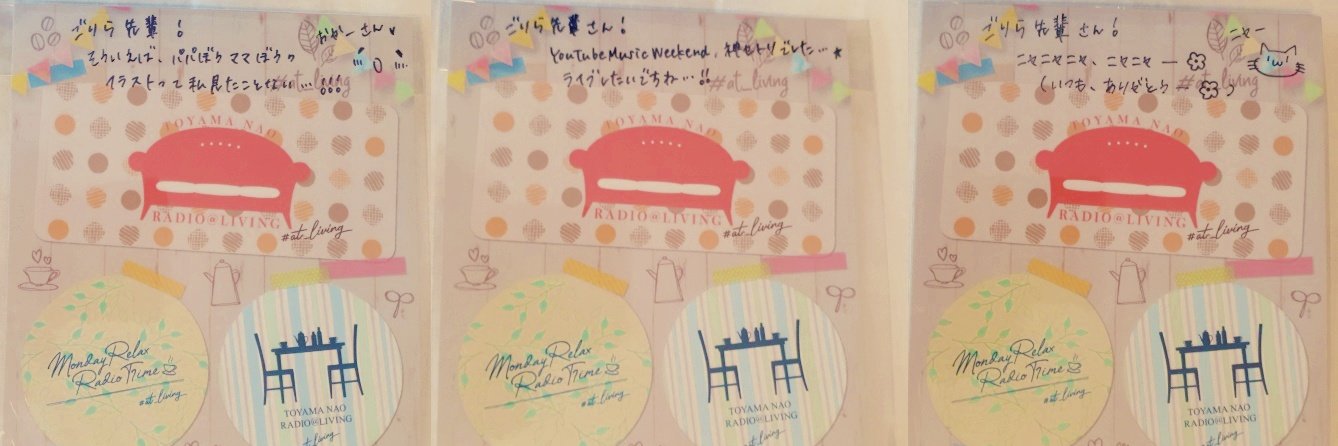 ごりら先輩！
おかーさん
そういえば、パパぼう ママぼうの
イラストって私見たことない…
#at_living
TOYAMA NAO
RADIO@LIVING
#at_living
Monday Relax
Radio Time
#at_living
TOYAMA NAO
RADIO@LIVING
#at_living
ごりら先輩さん！
YouTube Music Weekend、神セトリでした…★
ライブしたいですわ…!!
#at_living
TOYAMA NAO
RADIO@LIVING
#at_living
Monday Relax
Radio Time
#at_living
TOYAMA NAO
RADIO@LIVING
#at_living
ごりら先輩さん！
ニャー
ニャニャニャ、ニャニャー
(いつも、ありがとう)
#at_living
TOYAMA NAO
RADIO@LIVING
#at_living
Monday Relax
Radio Time
#at_living
TOYAMA NAO
RADIO@LIVING
#at_living